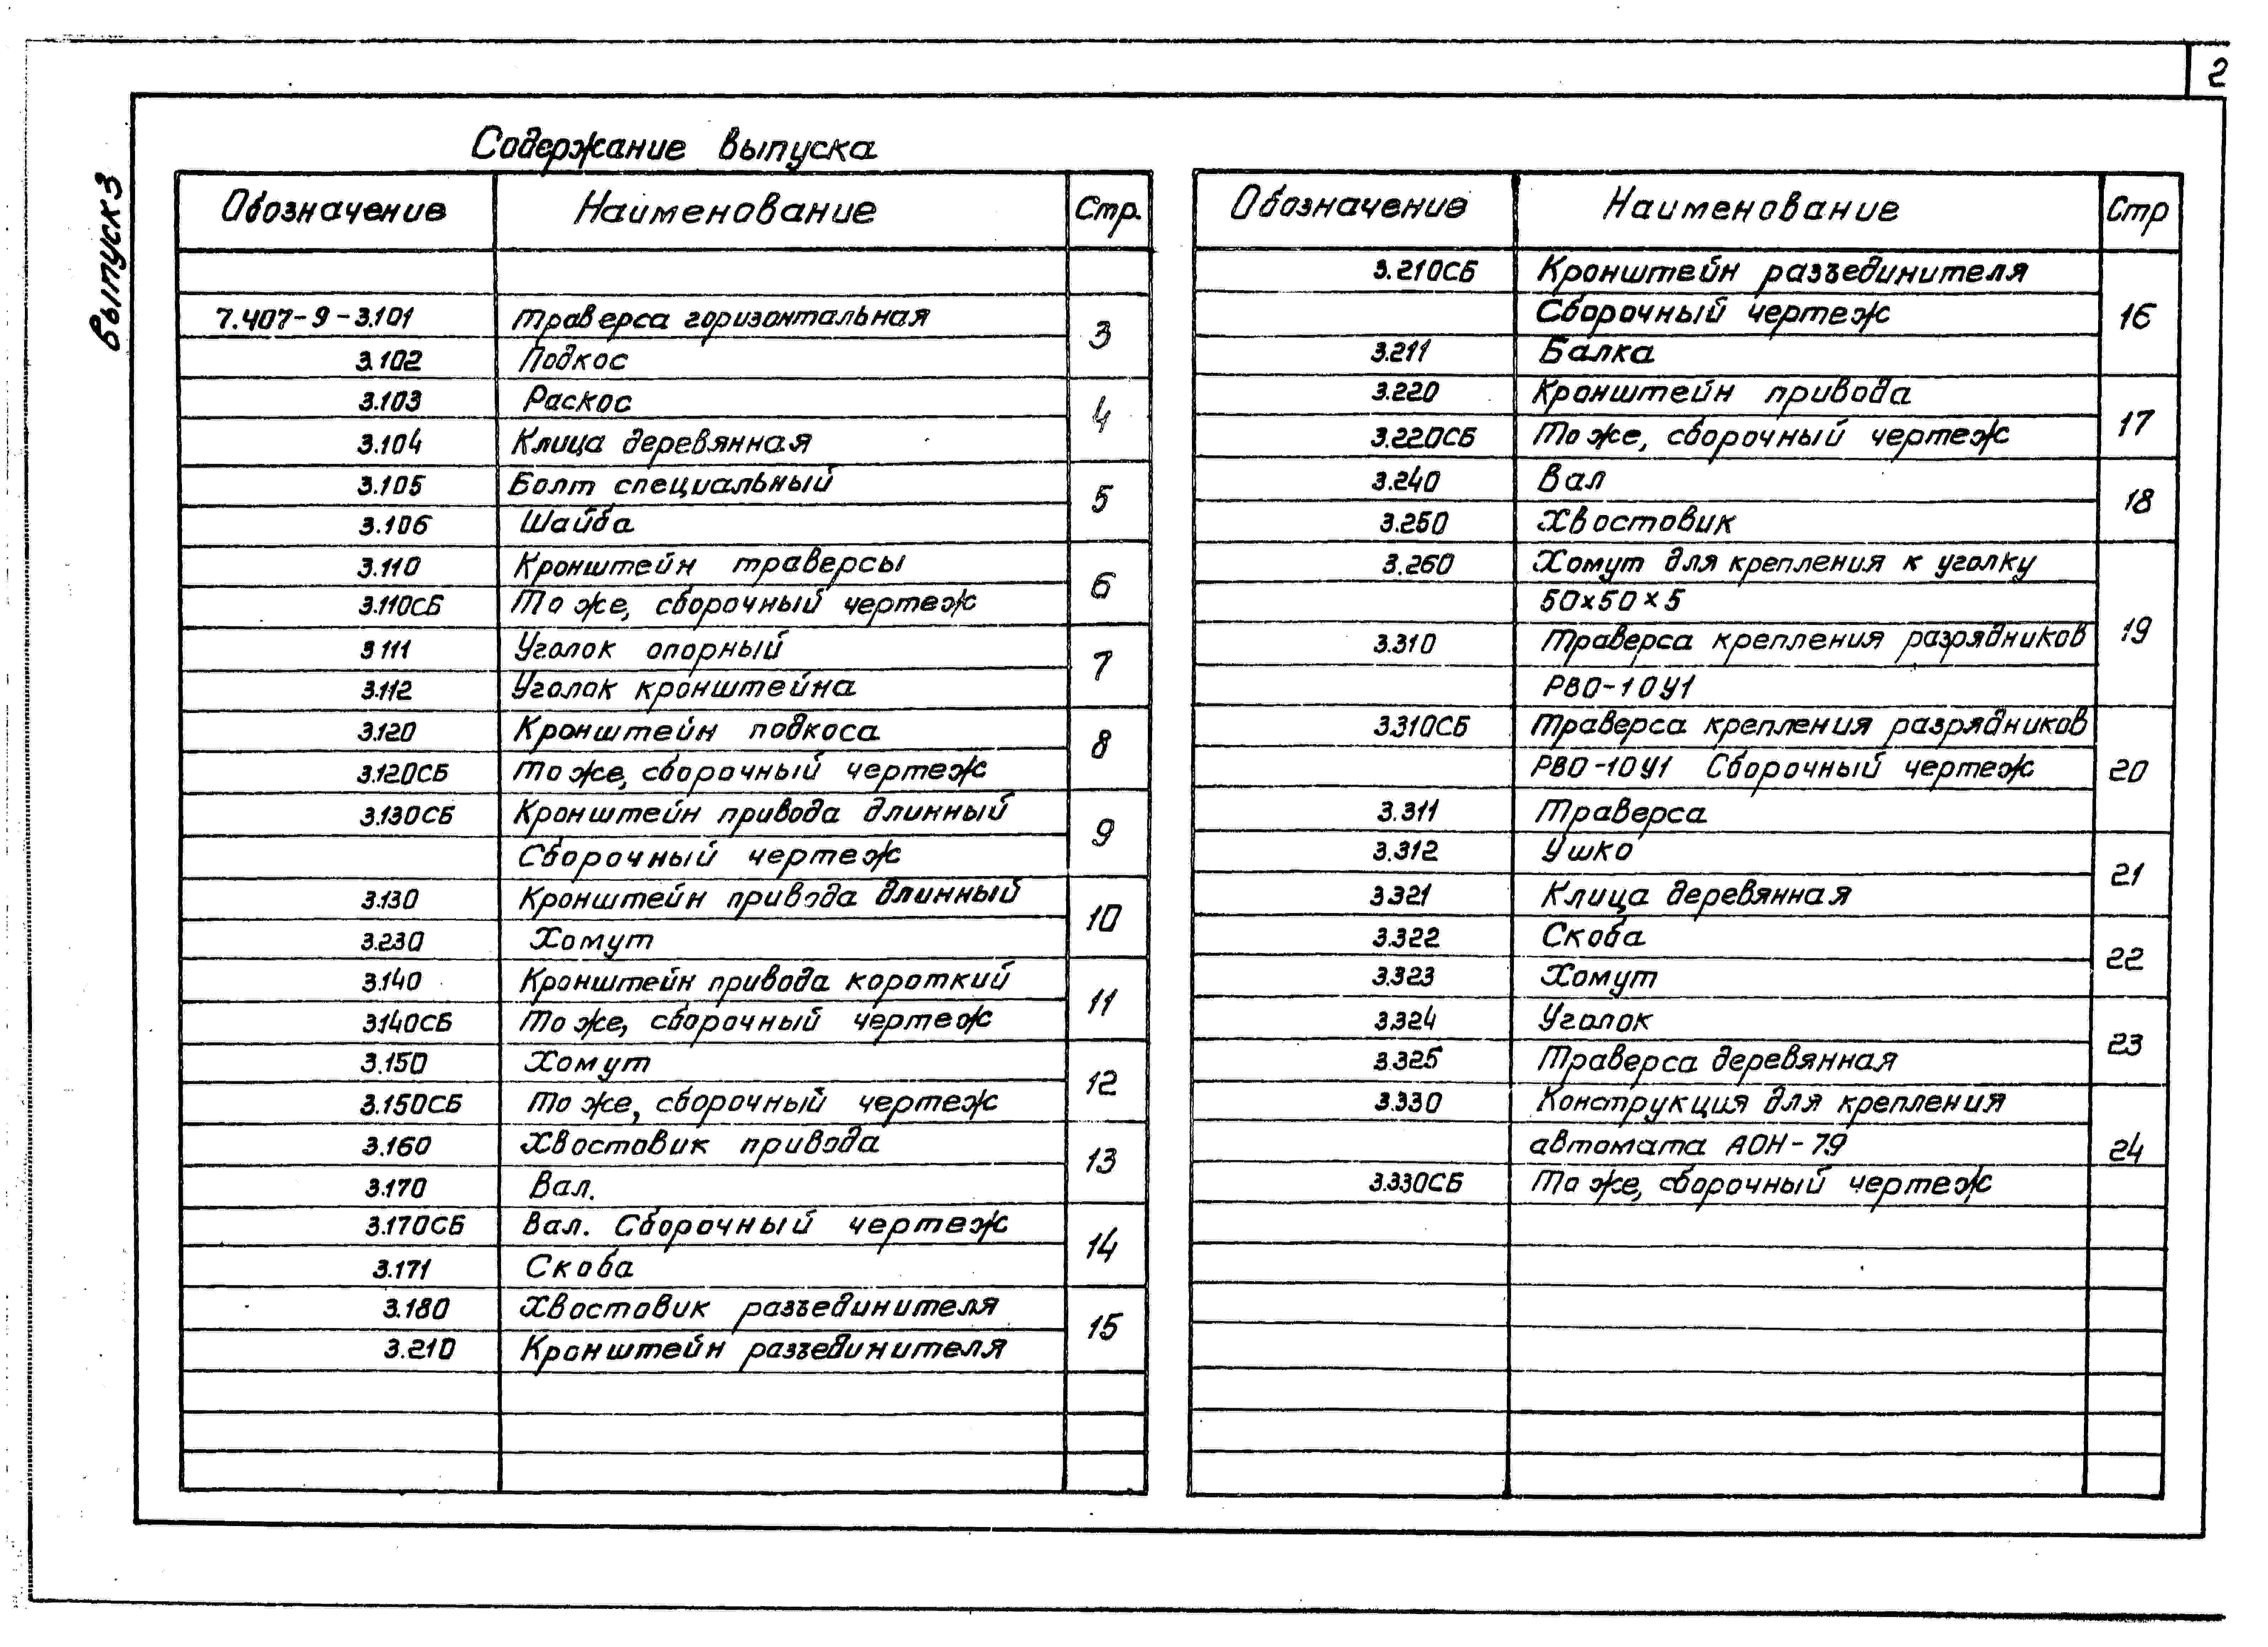 2
Выпуск 3
Содержание выпуска
Обозначение Наименование Стр.
7.407-9-3.101 Траверса горизонтальная 3
3.102 Подкос
3.103 Раскос 4
3.104 Клица деревянная
3.105 Болт специальный 5
3.106 Шайба
3.110 Кронштейн траверсы 6
3.110СБ То же, сборочный чертеж
3 111 Уголок опорный 7
3.112 Уголок кронштейна
3.120 Кронштейн подкоса 8
3.120СБ То же, сборочный чертеж
3.130СБ Кронштейн привода длинный 9
Сборочный чертеж
3.130 Кронштейн привода длинный 10
3.230 Хомут
3.140 Кронштейн привода короткий 11
3.140СБ То же, сборочный чертеж
3.150 Хомут 12
3.150СБ То же, сборочный чертеж
3.160 Хвостовик привода 13
3.170 Вал.
3.170СБ Вал. Сборочный чертеж 14
3.171 Скоба
3.180 Хвостовик разъединителя 15
3.210 Кронштейн разъединителя
Обозначение Наименование Стр
3.210СБ Кронштейн разъединителя 16
Сборочный чертеж
3.211 Балка
3.220 Кронштейн привода 17
3.220СБ То же, сборочный чертеж
3.240 Вал 18
3.250 Хвостовик
3.260 Хомут для крепления к уголку 19
50×50×5
3.310 Траверса крепления разрядников
РВО-10У1
3.310СБ Траверса крепления разрядников 20
РВО-10У1 Сборочный чертеж
3.311 Траверса
3.312 Ушко 21
3.321 Клица деревянная
3.322 Скоба 22
3.323 Хомут
3.324 Уголок 23
3.325 Траверса деревянная
3.330 Конструкция для крепления 24
автомата АОН-79
3.330СБ То же, сборочный чертеж